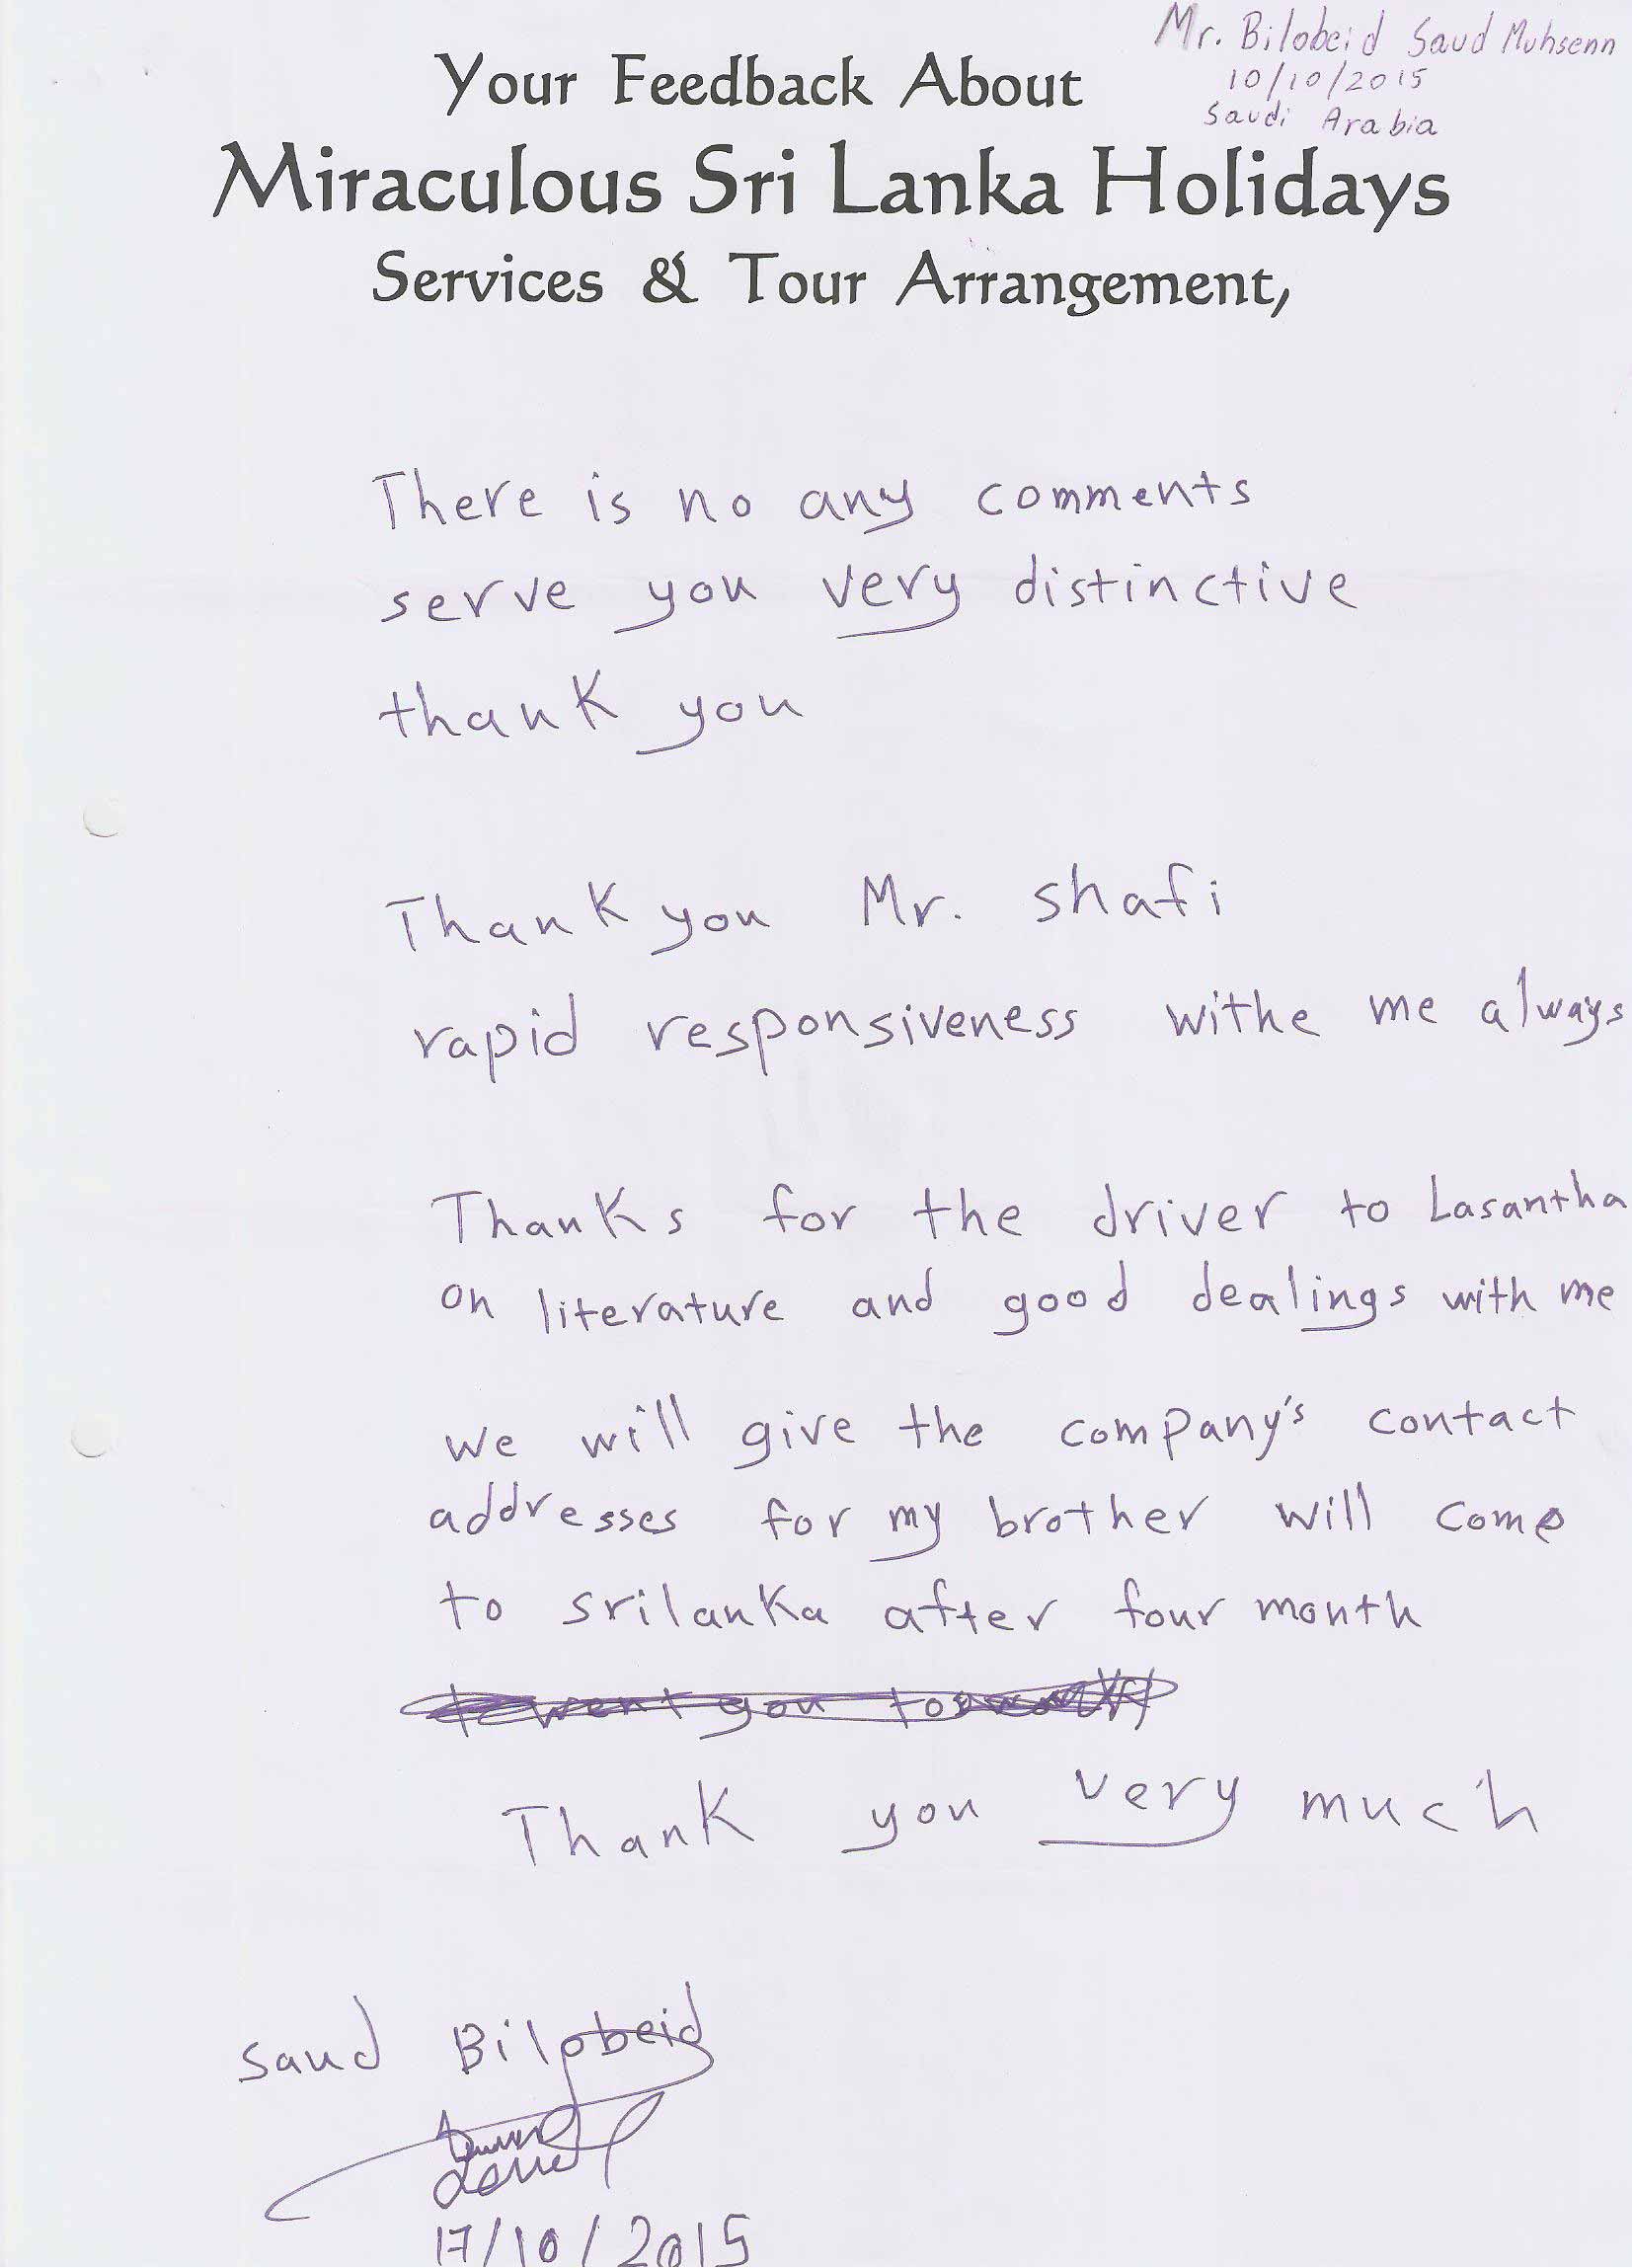 Mr. Bilobeid Saud Muhsenn
10/10/2015
Saudi Arabia
Your Feedback About
Miraculous Sri Lanka Holidays
Services & Tour Arrangement,
There is no any comments
serve you very distinctive
thank you
Thank you Mr. shafi
rapid responsiveness withe me always
Thanks for the driver to Lasantha
on literature and good dealings with me
we will give the company's contact
addresses for my brother will come
to srilanka after four month
Thank you very much
saud Bilobeid
17/10/2015